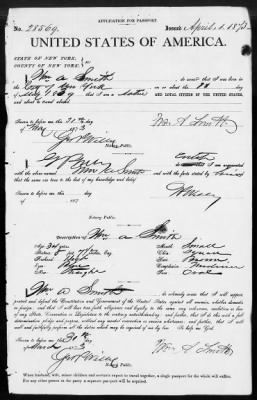 APPLICATION FOR PASSPORT.
No. 28569. Issued April 1. 1873
UNITED STATES OF AMERICA.
STATE OF NEW YORK,
COUNTY OF NEW YORK,
I Wm A Smith do swear that I was born in
the City of New York on about the
a native AND LOYAL CITIZEN OF THE UNITED STATES,
and about to travel abroad.
Sworn to before me this 31st day
of Mar 1873
Wm. A. Smith
Notary Public.
I am acquainted
with the above named Wm A Smith and with the facts stated by him
and that the same are true to the best of my knowledge and belief
Sworn to before me this day
of 187
Notary Public.
Description of Wm A Smith
Age
Stature
Forehead
Eyes
Nose
Mouth Small
Chin
Hair Brown
Complexion
Face Oval
I, Wm A Smith do solemnly swear that I will support,
protect and defend the Constitution and Government of the United States against all enemies, whether domestic
or foreign; and that I will bear true faith, allegiance and loyalty to the same, any ordinance, resolution or law
of any State, Convention or Legislature to the contrary notwithstanding; and further, that I do this with a full
determination, pledge and purpose, without any mental reservation or evasion whatsoever; and further, that I will
well and faithfully perform all the duties which may be required of me by law. So help me God.
Sworn to before me this 31st day
of March 1873
Wm A Smith
Notary Public.
When husband, wife, minor children and servants expect to travel together, a single passport for the whole will suffice.
For any other person in the party a separate passport will be required.